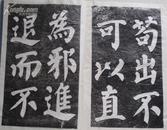 苟出不
可以直
為邪進
退而不